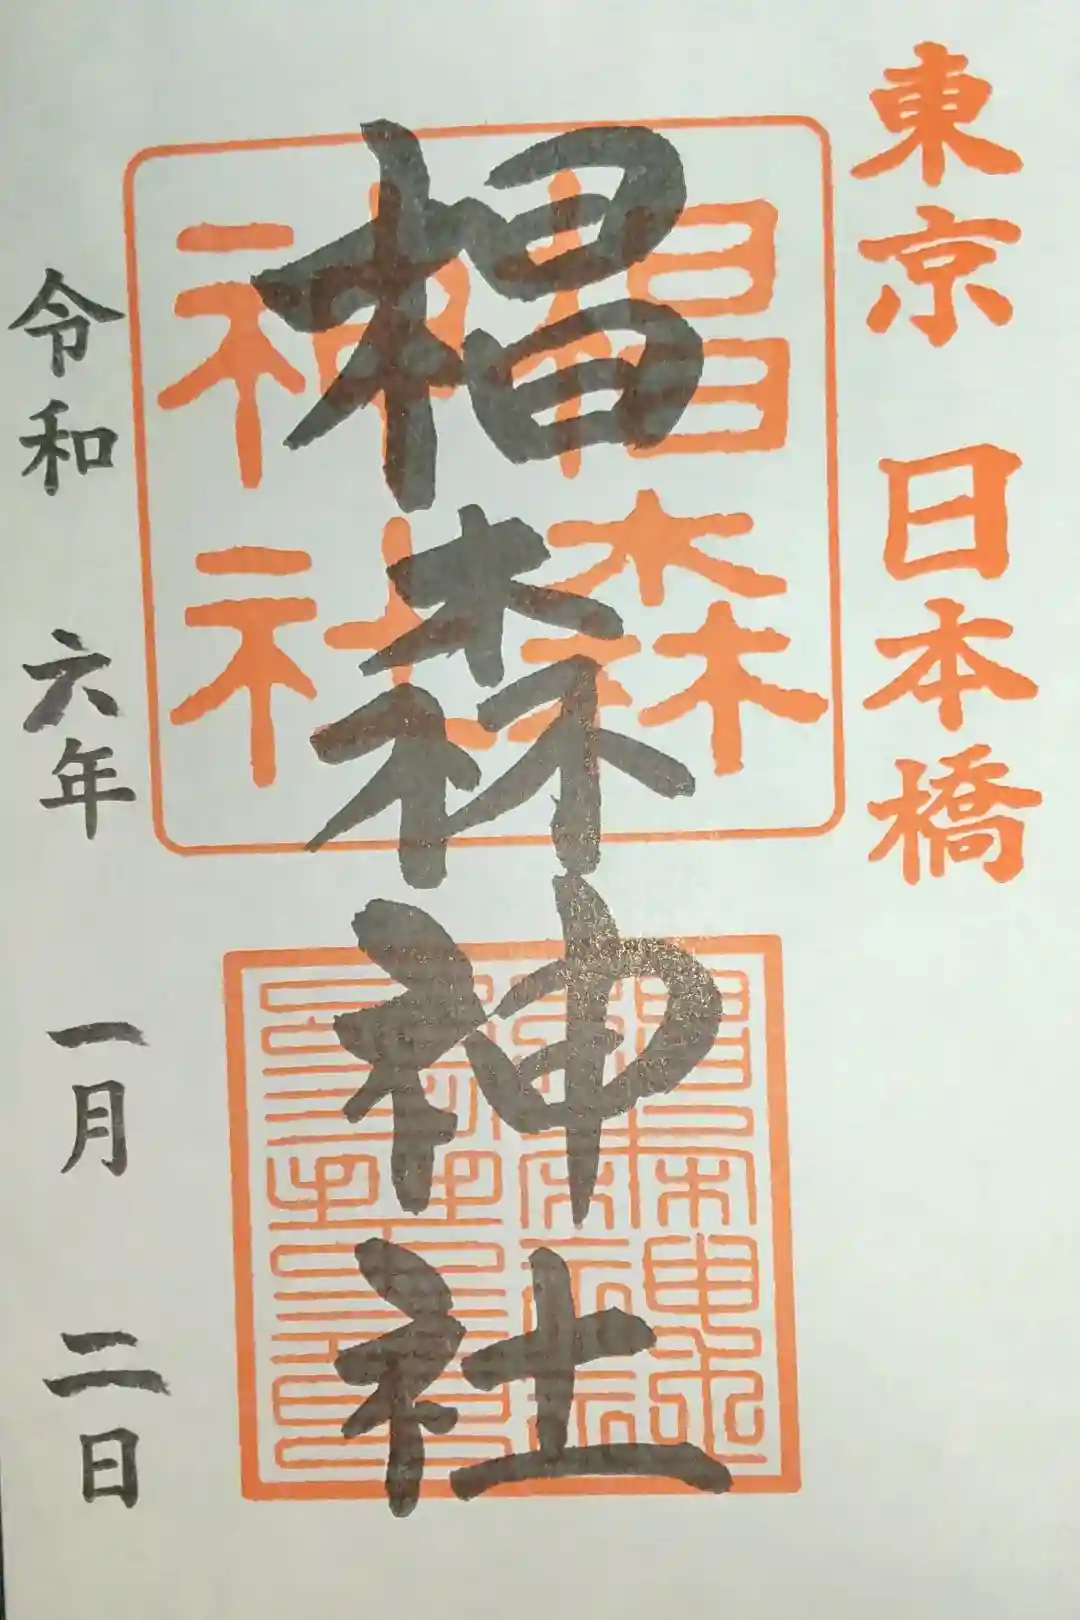 東京 日本橋
椙森
神社
椙森神社
令和 六年 一月 二日